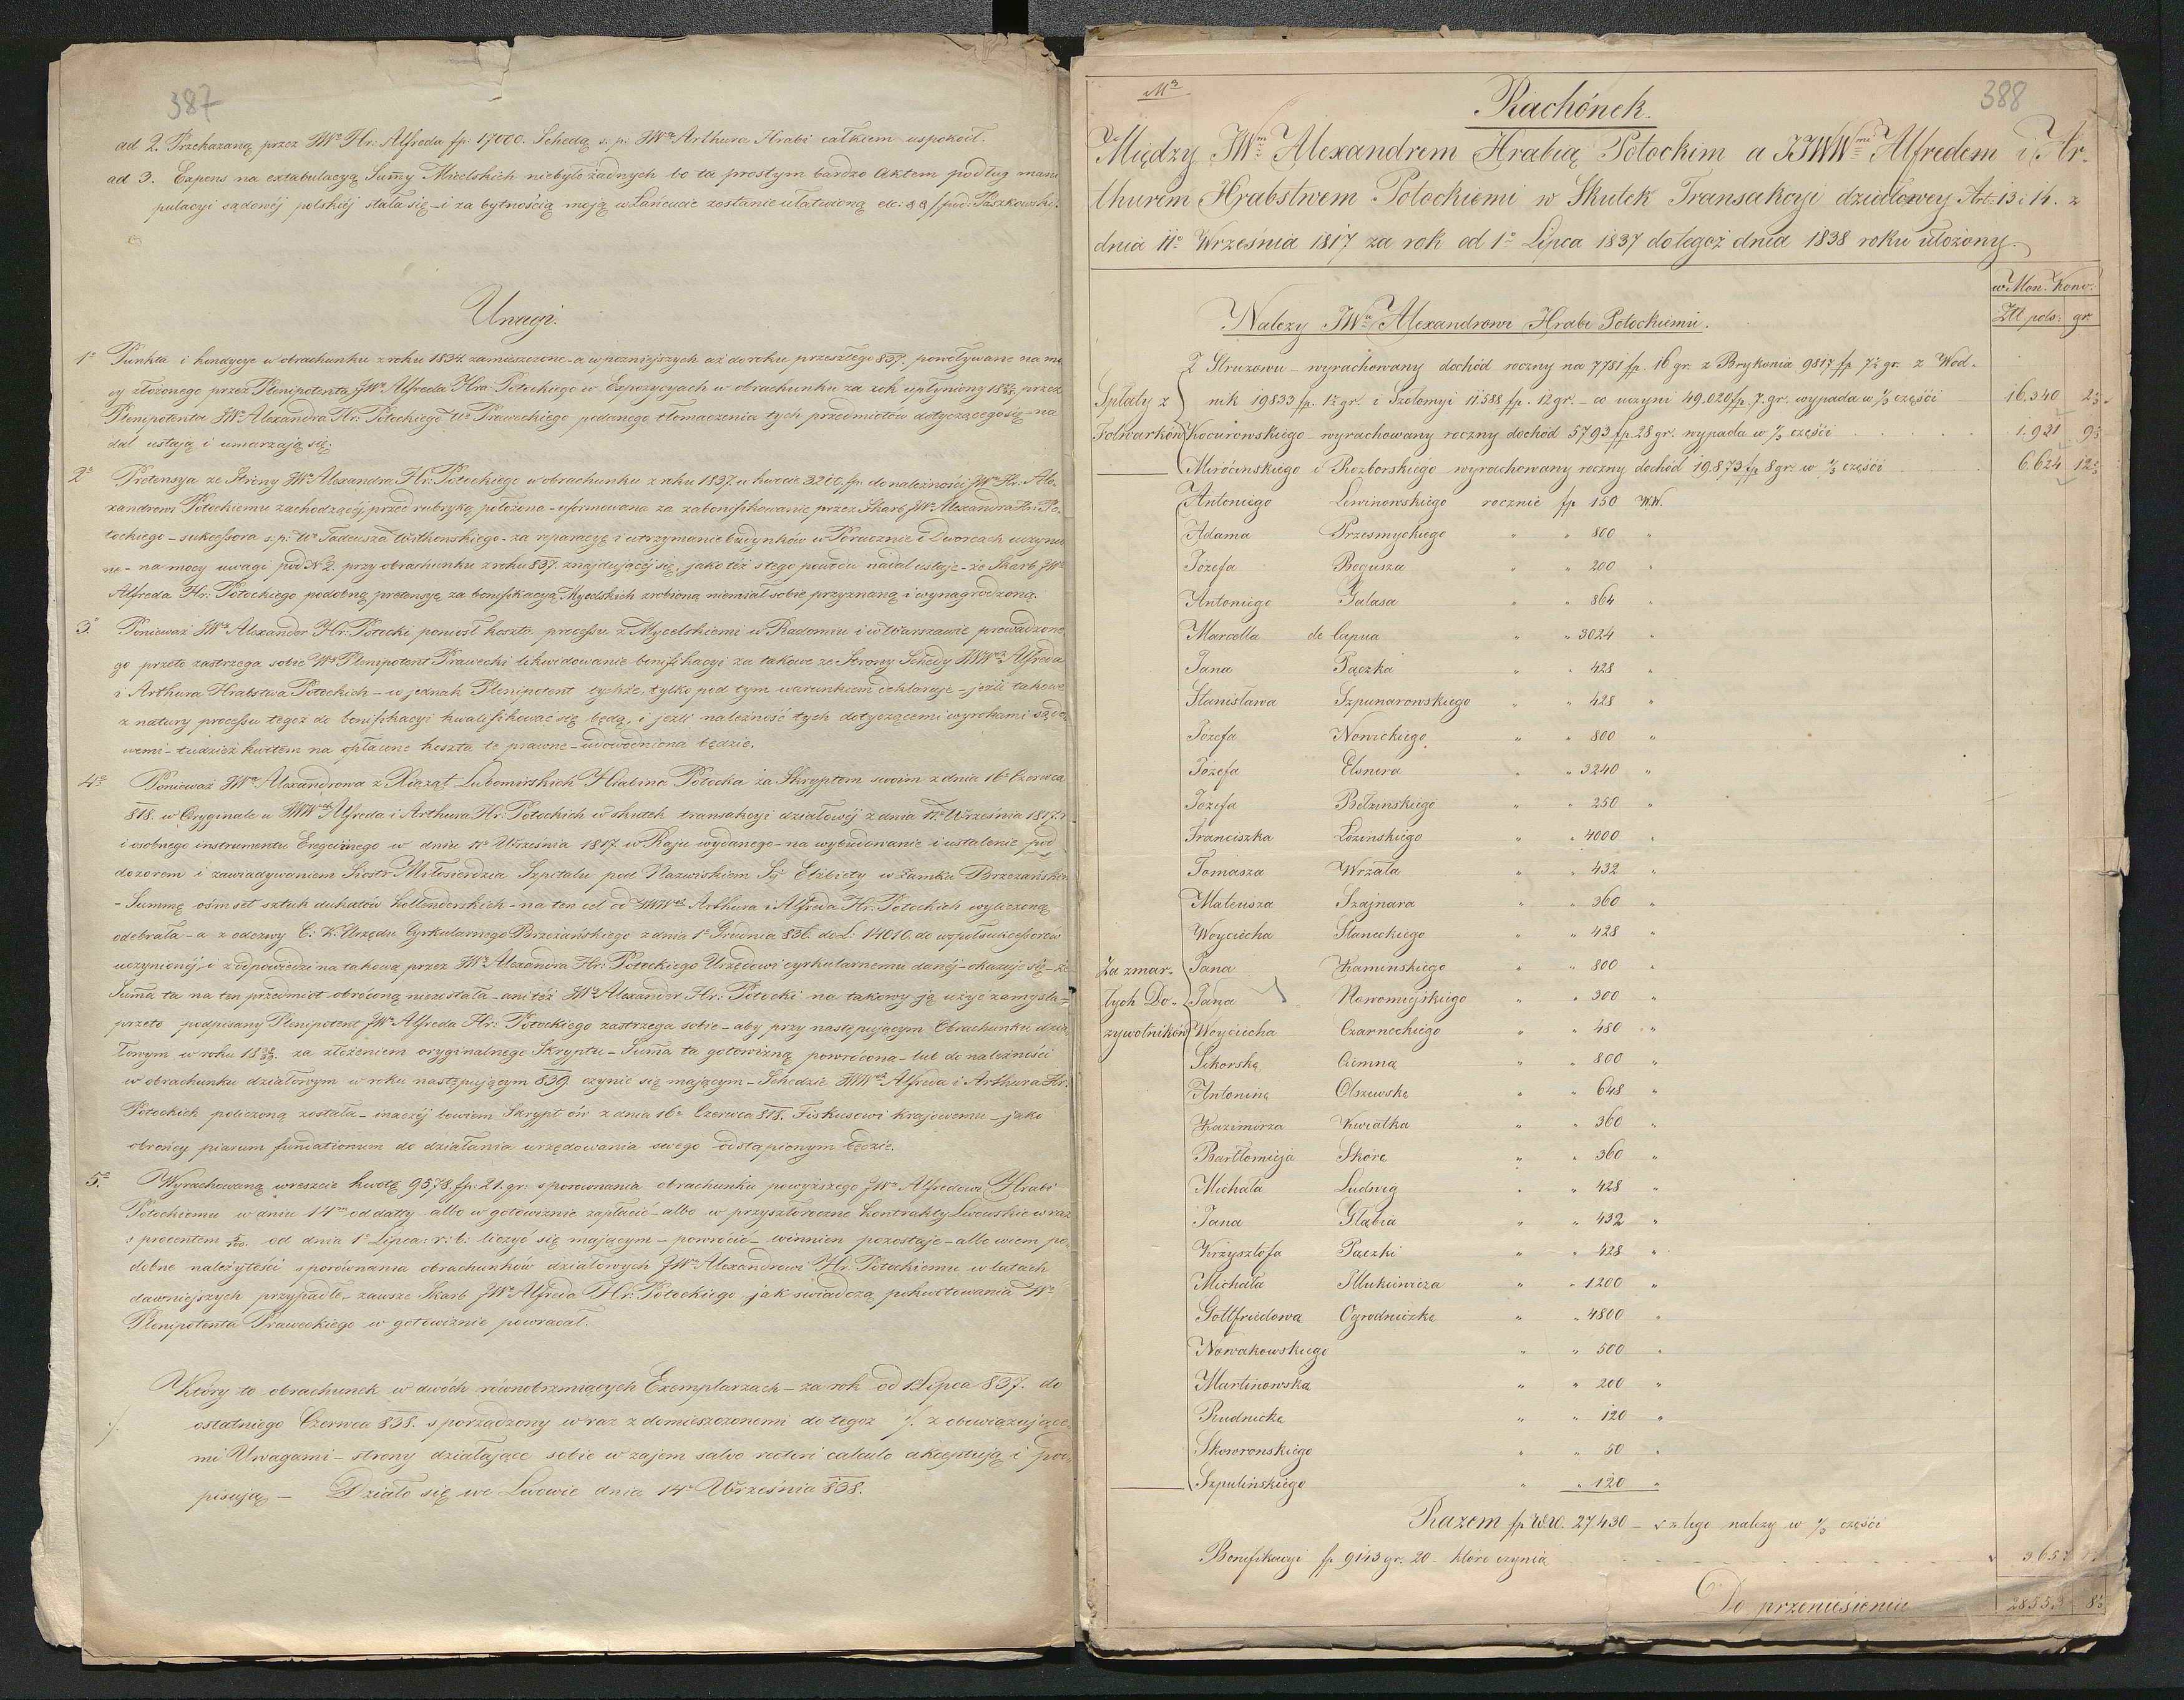 387
ad 2. Przekazaną przez JWo Hr: Alfreda fp. 17000. Schedą ś: p: JWgo Arthura Hrabi całkiem uspokoił.
ad 3. Expens na extabulacyą Summy Mielskich niebyło żadnych bo ta prostym bardzo Aktem podług mani
pulacyi sądowéj polskiéj stała się – i za bytnością moją w Łańcucie zostanie ułatwioną etc: pod: Paszkowski.
Uwagi.
1o Punkta i kondycye w obrachunku z roku 1834 zamieszczone – a w pozniejszych aż do roku przeszłego 837. powoływane na mo
cy złożonego przez Plenipotenta JWo Alfreda Hra: Potockiego w Expozycyach w obrachunku za rok upłyniony przez
Plenipotenta JWo Alexandra Hr: Potockiego Wo Praweckiego podanego tłomaczenia tych przedmiotów dotyczącego się – na
dal ustają i umarzają się.
2o Pretensya ze Strony JWo Alexandra Hr: Potockiego w obrachunku z roku 1837. w kwocie fp. do należności JWo Hr. Ale
xandrowi Potockiemu zachodzącéj przed rubryką położona – uformowana za zabonifikowanie przez Skarb JWo Alexandra Hr: Po
tockiego – sukcessora ś: p: Wo Tadeusza – za reparacyę i utrzymanie budynków w Porucznie i Dworcach uczynio
ne – na mocy uwagi pod N 2. przy obrachunku z roku 837. znajdującéj się, jako téż z tego powodu nadal ustaje – że Skarb JWo
Alfreda Hr: Potockiego podobną pretensyę za bonifikacyą Mycelskich zrobioną niemiał sobie przyznaną i wynagrodzoną.
3o Ponieważ JWo Alexander Hr: Potocki poniosł koszta processu z Mycelskiemi w Radomiu i w Warszawie prowadzone
go przeto zastrzega sobie Wo Plenipotent Prawecki likwidowanie bonifikacyi za takowe ze Strony Schedy JWWch Alfreda
i Arthura Hrabstwa Potockich – w jednak Plenipotent tychże, tylko pod tym warunkiem deklaruje – jeżli takowe
z natury processu tegoż do bonifikacyi kwalifikować się będą, i jeżli należność tych dotyczącemi wyrokami sądo
wemi – tudzież kwitem na opłacone koszta te prawne – udowodniona będzie.
4o Ponieważ JWa Alexandrowa z Xiążąt Lubomirskich Hrabina Potocka za Skryptem swoim z dnia 16o Czerwca
818. w Oryginale u JWWch Alfreda i Arthura Hr: Potockich w skutek transakcyi działowéj z dnia 11o Września 1817. r
i osobnego instrumentu w dniu 11o Września 1817 w Raju wydanego – na wybudowanie i ustalenie pod
dozorem i zawiadywaniem Siostr Miłosierdzia Szpitalu pod Nazwiskiem Sj Elżbiety w Zamku Brzezańskim
– Summę ośmset sztuk dukatów hollenderskich – na ten cel od JWWch Arthura i Alfreda Hr: Potockich wyliczoną
odebrała – a z odezwy C: K: Urzędu Cyrkularnego Brzeżańskiego z dnia 1o Grudnia 836. do L: 14010. do współsukcessorów
uczynionéj, i z odpowiedzi na takową przez JWo Alexandra Hr: Potockiego Urzędowi cyrkularnemu danéj – okazuje się – że
Suma ta na ten przedmiot obróconą niezostała – ani téż JWo Alexander Hr: Potocki na takowy ją użyć zamyśla =
przeto podpisany Plenipotent JWo Alfreda Hr: Potockiego zastrzega sobie – aby przy następującym Obrachunku dzia
łowym w roku za złożeniem oryginalnego Skryptu – Suma ta gotowizną powrócona – lub do należności
w obrachunku działowym w roku następującym 839 czynić się mającym – Schedzie JWWch Alfreda i Arthura Hr:
Potockich policzoną została – inaczéj bowiem Skrypt ów z dnia 16o Czerwca 818. Fiskusowi krajowemu – jako
obrońcy piarum fundationum do działania urzędowania swego odstąpionym będzie.
5o Wyrachowaną wreszcie kwotę 9578. fp. 21. gr: z porównania obrachunku powyższego JWo Alfredowi Hrabi
Potockiemu w dniu 14m od datty – albo w gotowiznie zapłacić – albo w przyszłoroczne Kontrakty Lwowskie wraz
z procentem 5/100. od dnia 1o Lipca: r: b: liczyć się mającym – powrócić – winnien pozostaje – albowiem po
dobne należytości z porównania obrachunków działowych JWo Alexandrowi Hr: Potockiemu w latach
dawniejszych przypadłe – zawsze Skarb JWo Alfreda Hr: Potockiego jak świadczą pokwitowania Wo
Plenipotenta Praweckiego w gotowiznie powracał.
Który to obrachunek w dwóch równobrzmiących Exemplarzach – za rok od 1 Lipca 837. do
ostatniego Czerwca 838. sporządzony wraz z domieszczonemi do tegoż ./. z obowiązujące
./. mi Uwagami – strony działające sobie wzajem salvo recteri calculo akceptują i pod
pisują – Działo się we Lwowie dnia 14o Września 838.
388
Rachónek.
Między JWm Alexandrem Hrabią Potockim a JJWWmi Alfredem i Ar-
thurem Hrabstwem Potockiemi w Skutek Transakcyi działowey Art: 13 i 14. z
dnia 11o Września 1817 za rok od 1o Lipca 1837 do tegoż dnia 1838 roku ułożony.
w Mon. Konv:
Złł pols: gr:
Nalezy JWu Alexandrowi Hrabi Potockiemu.
Z Struzowu – wyrachowany dochód roczny na 7781 fp. 16 gr. z Brykonia 9817 fp 7½ gr. z Wod-
Spłaty z nik 19833 fp. 1½ gr. i Szołomyi 11588 fp. 12 gr. – co uczyni 49.020 fp. 7. gr. wypada w ⅓ części 16.340 2⅓
Folwarków Kocurowskiego – wyrachowany roczny dochód 5793 fp. 28 gr. wypada w ⅓ części 1.931 9⅓
Miroćinskiego i Rozborskiego – wyrachowany roczny dochód 19.873 fp 8 gr. w ⅓ części 6.624 12⅔
Antoniego Lewinowskiego rocznie fp 150 W.W.
Adama Przesmyckiego " " 800 "
Józefa Bogusza " " 200 "
Antoniego Galasa " " 864 "
Marcella de Capua " " 3024 "
Jana Pączka " " 428 "
Stanisława Szpunarowskiego " " 428 "
Józefa Nowickiego " " 800 "
Józefa Elsnera " " 3240 "
Józefa Bełzinskiego " " 250 "
Franciszka Łozinskiego " " 4000 "
Tomasza Wrzała " " 432 "
Mateusza Szajnara " " 360 "
Woyciecha Staneckiego " " 428 "
Za zmar- Jana Kaminskiego " " 800 "
łych Do- Jana Nowomiejskiego " " 300 "
zywotników Woyciecha Czarneckiego " " 480 "
Sikorską Cimną " " 800 "
Antoninę Olszewską " " 648 "
Kazimirza Kwiatka " " 360 "
Bartłomieja Skórę " " 360 "
Michała Ludwig " " 428 "
Jana Głąbia " " 432 "
Krzysztofa Pączki " " 428 "
Michała Mukiewicza " " 1200 "
Gottfriedową Ogrodniczkę " " 4800 "
Nowakowskiego " " 500 "
Martinowską " " 200 "
Rudnicką " " 120 "
Skowronskiego " " 50 "
Szpulińskiego " " 120 "
Razem fp W.W. 27.430 – z tego nalezy w ⅓ części
Bonifikacyi fp 9143 gr. 20 – które czynią
Do przeniesienia 28553 8⅓